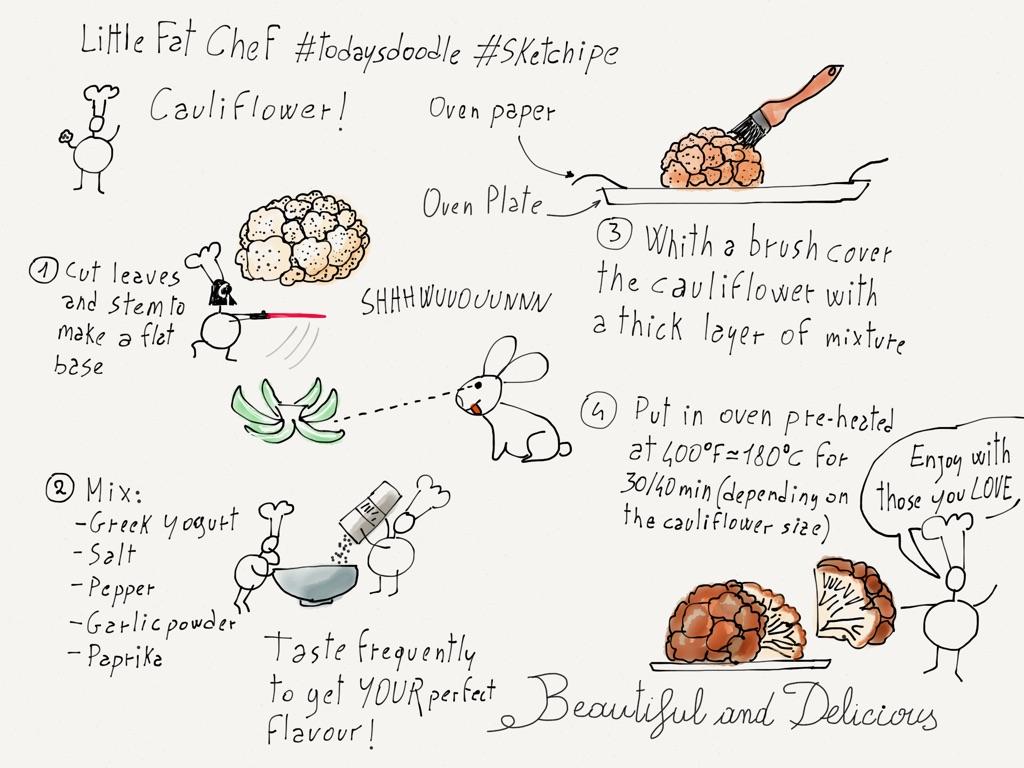 Little Fat Chef #todaysdoodle #Sketchipe
Cauliflower!
① Cut leaves
and stem to
make a flat
base
SHHHWUUOUUNNN
② Mix:
- Greek yogurt
- Salt
- Pepper
- Garlic powder
- Paprika
Taste frequently
to get YOUR perfect
flavour!
Oven paper
Oven Plate
③ Whith a brush cover
the cauliflower with
a thick layer of mixture
④ Put in oven pre-heated
at 400°F≈180°C for
30/40 min (depending on
the cauliflower size)
Enjoy with
those you LOVE
Beautiful and Delicious